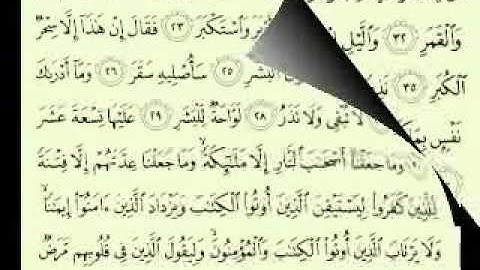 وَٱلْقَمَرِ ٣٢ وَٱلَّيْلِ وَٱسْتَكْبَرَ ٢٣ فَقَالَ إِنْ هَٰذَآ إِلَّا سِحْرٌ
ٱلْكُبَرِ ٣٥ ٱلْبَشَرِ ٢٥ سَأُصْلِيهِ سَقَرَ ٢٦ وَمَآ أَدْرَىٰكَ
نَفْسٍۭ لَا تُبْقِى وَلَا تَذَرُ ٢٨ لَوَّاحَةٌ لِّلْبَشَرِ ٢٩ عَلَيْهَا تِسْعَةَ عَشَرَ
وَمَا جَعَلْنَآ أَصْحَٰبَ ٱلنَّارِ إِلَّا مَلَٰٓئِكَةً ۙ وَمَا جَعَلْنَا عِدَّتَهُمْ إِلَّا فِتْنَةً
لِّلَّذِينَ كَفَرُوا۟ لِيَسْتَيْقِنَ ٱلَّذِينَ أُوتُوا۟ ٱلْكِتَٰبَ وَيَزْدَادَ ٱلَّذِينَ ءَامَنُوٓا۟ إِيمَٰنًا ۙ
وَلَا يَرْتَابَ ٱلَّذِينَ أُوتُوا۟ ٱلْكِتَٰبَ وَٱلْمُؤْمِنُونَ ۙ وَلِيَقُولَ ٱلَّذِينَ فِى قُلُوبِهِم مَّرَضٌ